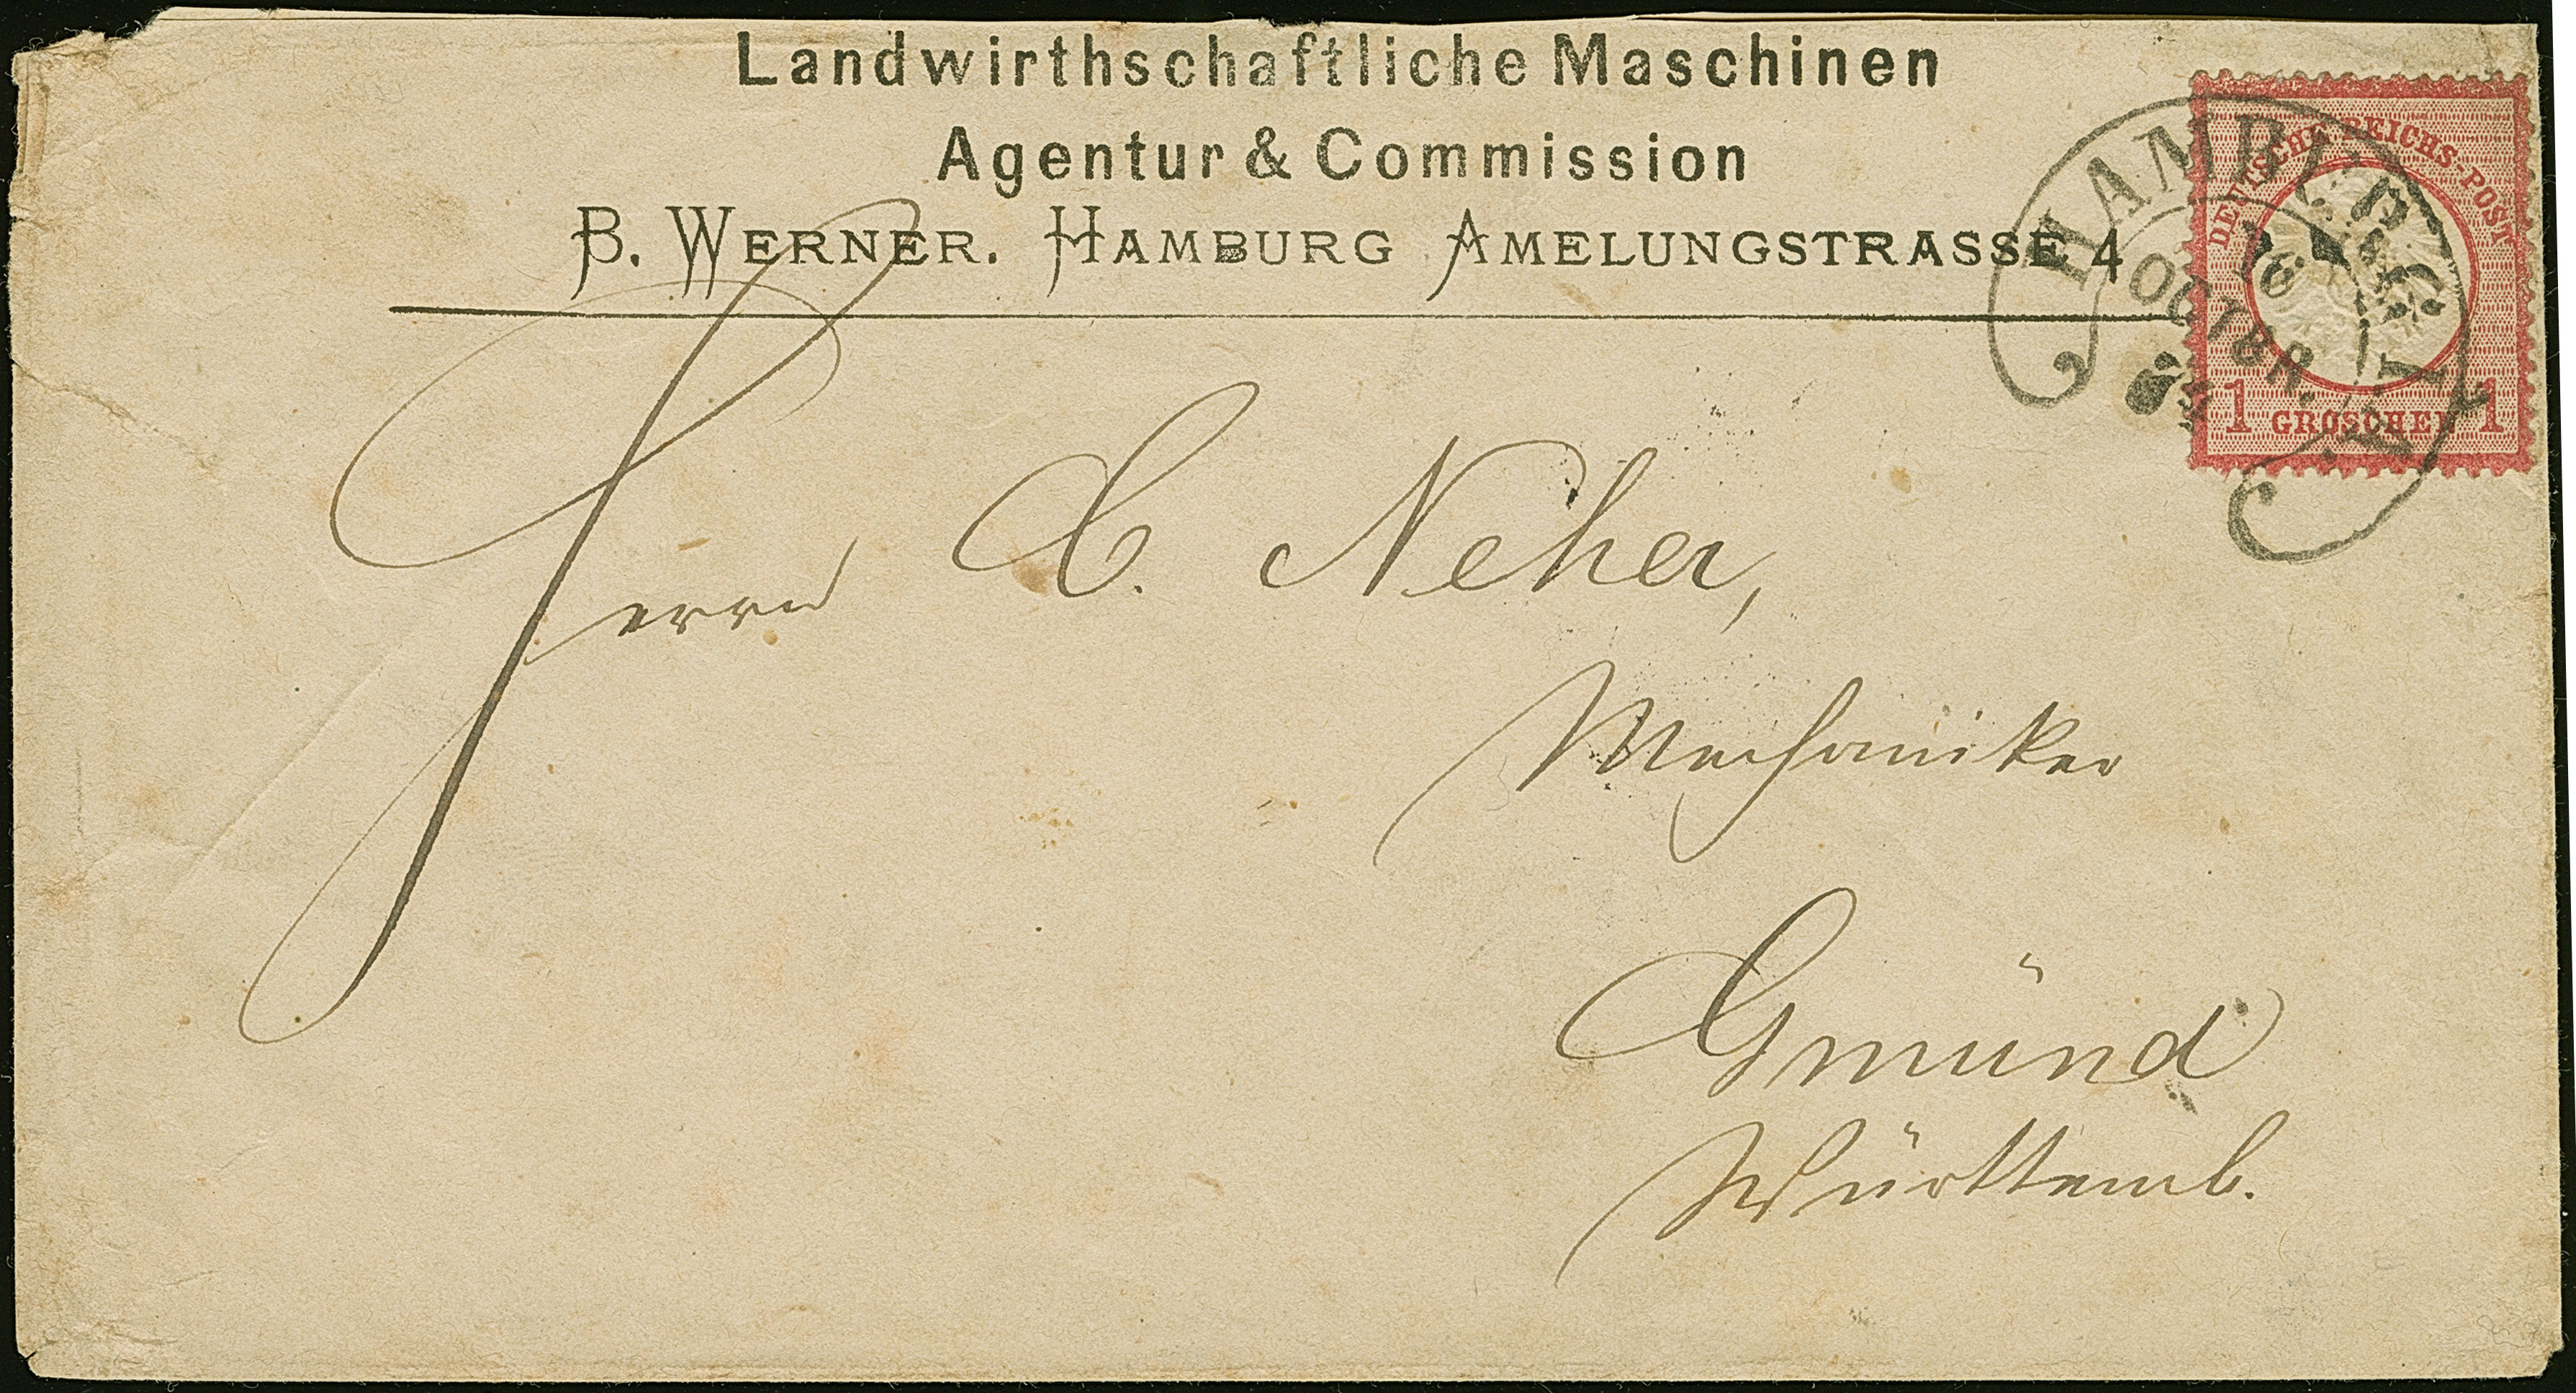 Landwirthschaftliche Maschinen
Agentur & Commission
B. WERNER. HAMBURG AMELUNGSTRASSE 4
HAMBURG I.A.
DEUTSCHE REICHS-POST
1 GROSCHEN 1
Herrn C. Neher,
Mechaniker
Gmünd
Württemb.